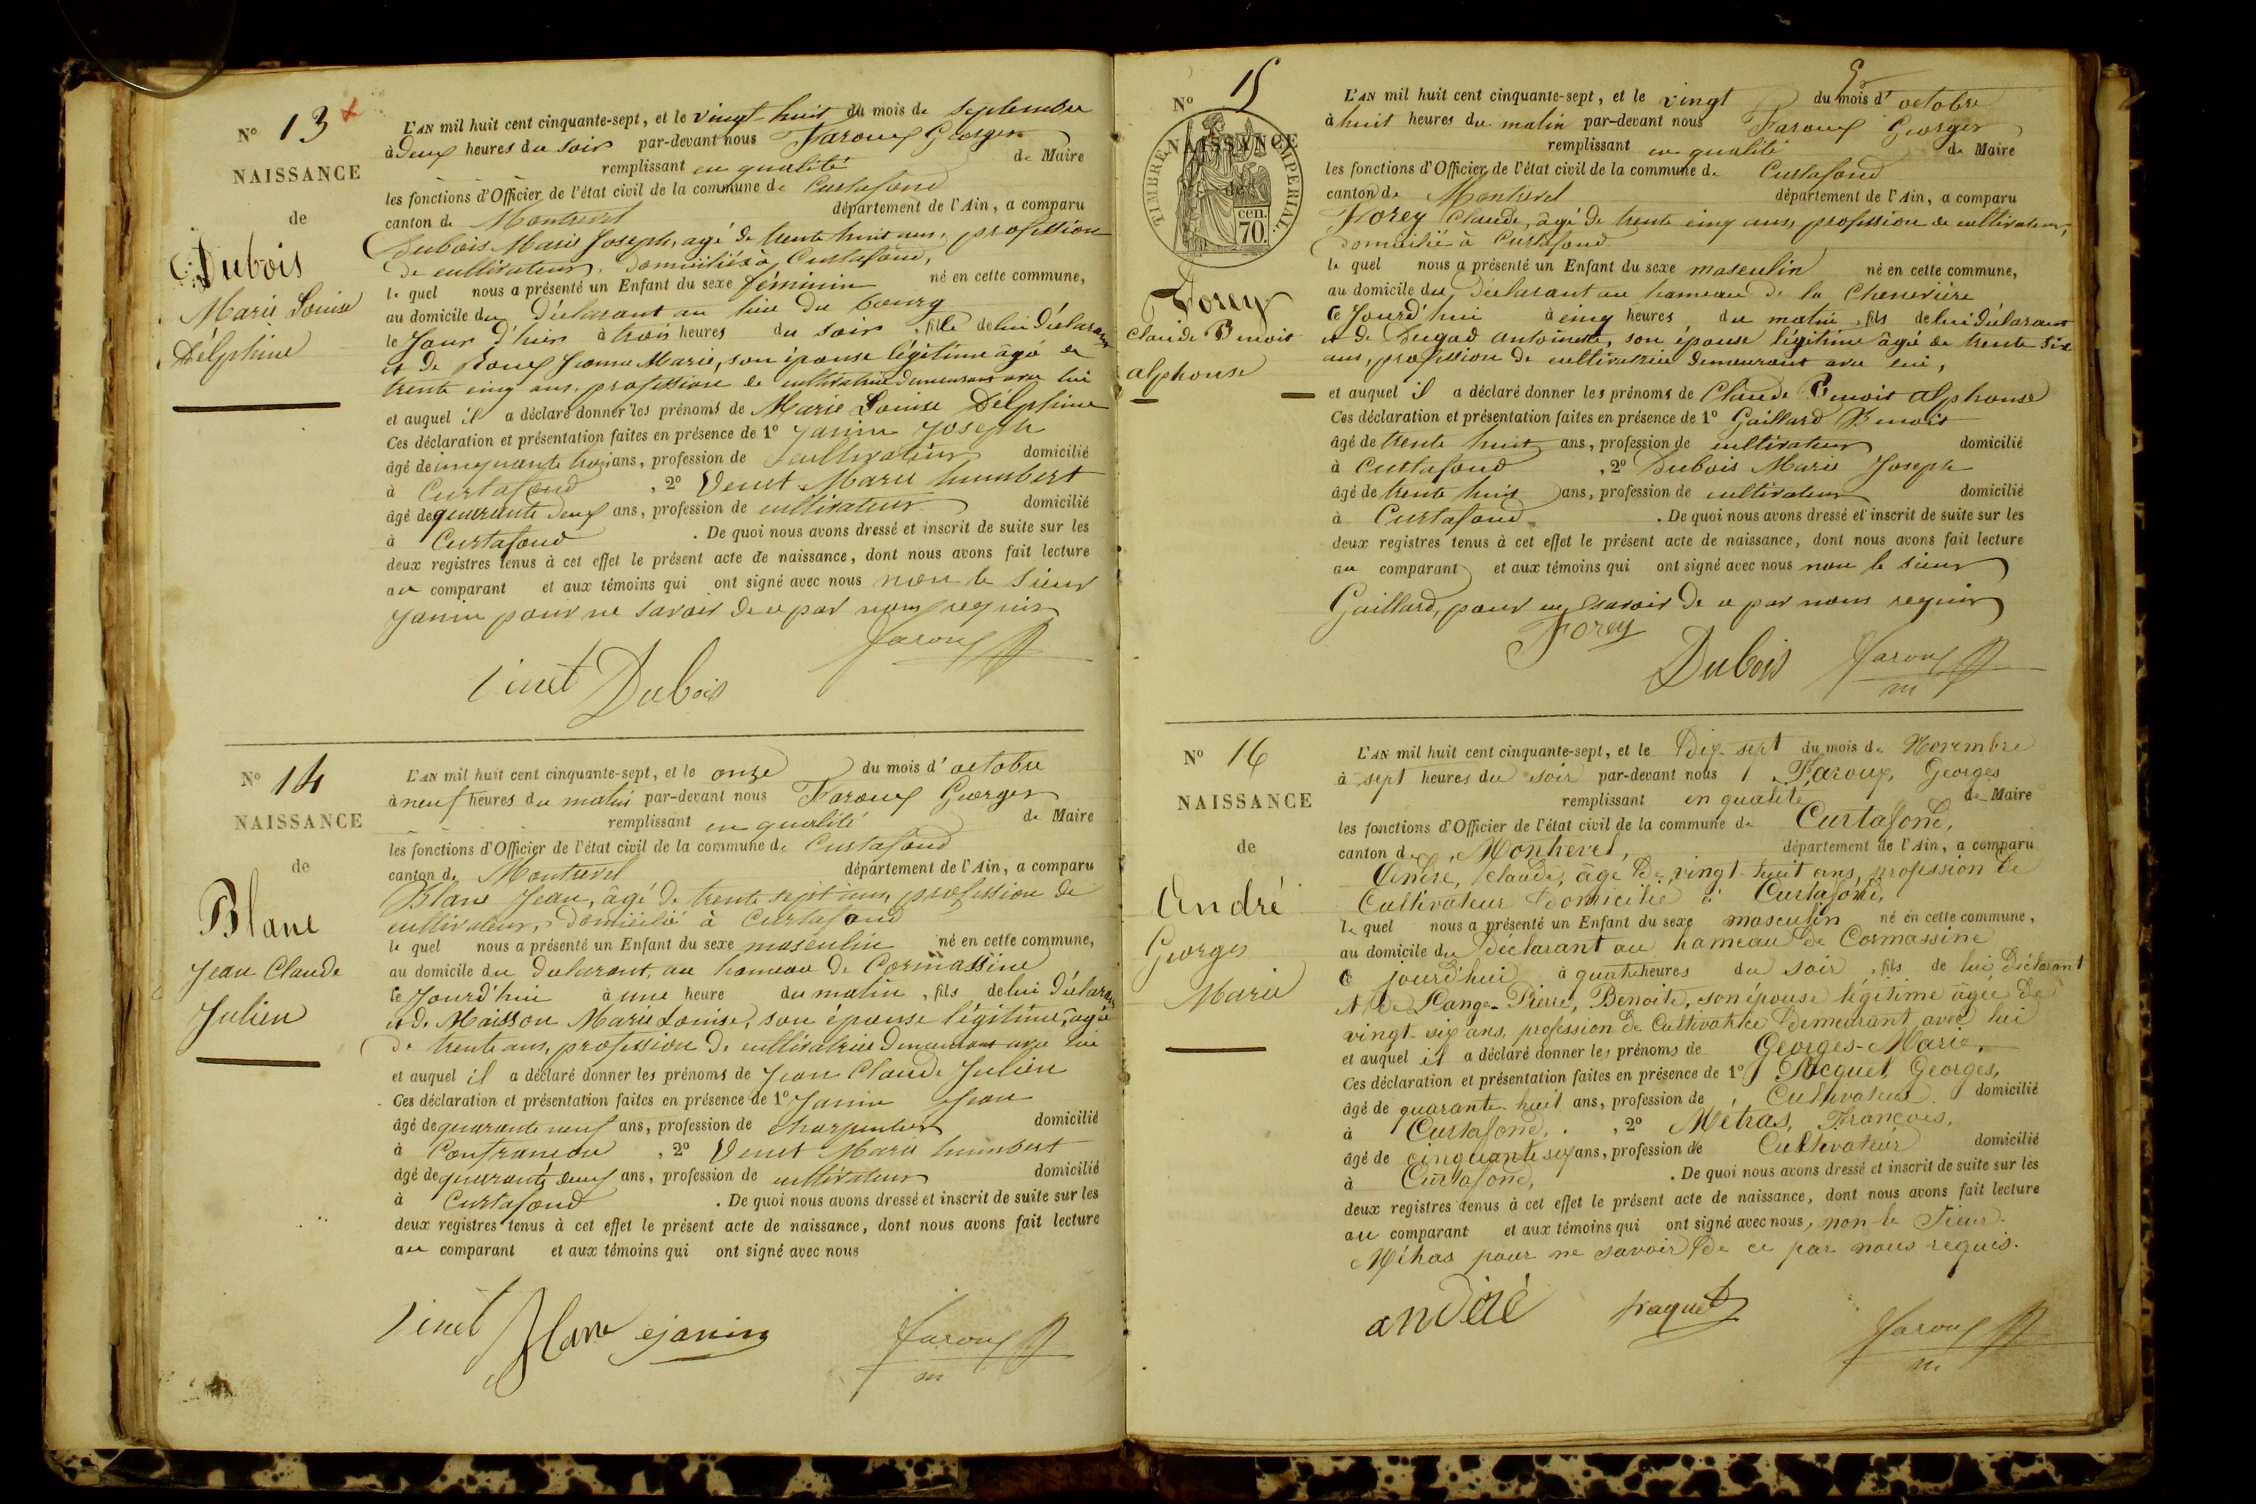 N° 13
NAISSANCE
de
Dubois
Marie Louise
Délphine
L'AN mil huit cent cinquante-sept, et le vingt huit du mois de Septembre
à Deux heures du soir par-devant nous Faroux Georges
remplissant en qualité de Maire
les fonctions d'Officier de l'état civil de la commune de Curtafond
canton de Montrevel département de l'Ain, a comparu
Dubois Marie Joseph, agé de trente huit ans, profession
de cultivateur, domicilié à Curtafond,
le quel nous a présenté un Enfant du sexe féminin né en cette commune,
au domicile du Déclarant au lieu du bourg
le Jour d'hier à trois heures du soir, fille de lui Déclarant
et de Jeanne Marie, son épouse légitime âgé de
trente cinq ans, profession de cultivatrice demeurant avec lui
et auquel il a déclaré donner les prénoms de Marie Louise Delphine
Ces déclaration et présentation faites en présence de 1° Janin Joseph
âgé de cinquante trois ans, profession de cultivateur domicilié
à Curtafond, 2° Venet Marie humbert
âgé de quarante deux ans, profession de cultivateur domicilié
à Curtafond. De quoi nous avons dressé et inscrit de suite sur les
deux registres tenus à cet effet le présent acte de naissance, dont nous avons fait lecture
au comparant et aux témoins qui ont signé avec nous non le Sieur
Janin pour ne savoir de ce par nous requis
Faroux
Vinet Dubois
N° 14
NAISSANCE
de
Blanc
Jean Claude
Julien
L'AN mil huit cent cinquante-sept, et le onze du mois d'octobre
à neuf heures du matin par-devant nous Faroux Georges
remplissant en qualité de Maire
les fonctions d'Officier de l'état civil de la commune de Curtafond
canton de Montrevel département de l'Ain, a comparu
Blanc Jean, âgé de trente sept ans, profession de
cultivateur, domicilié à Curtafond
le quel nous a présenté un Enfant du sexe masculin né en cette commune,
au domicile du déclarant, au hameau de Cormassine
ce Jourd'hui à une heure du matin, fils de lui Déclarant
et de Maisson Marie Louise, son épouse légitime, agée
de trente ans, profession de cultivatrice demeurant avec lui
et auquel il a déclaré donner les prénoms de Jean Claude Julien
Ces déclaration et présentation faites en présence de 1° Janin Jean
âgé de quarante neuf ans, profession de charpentier domicilié
à Confrançon, 2° Venet Marie humbert
âgé de quarante deux ans, profession de cultivateur domicilié
à Curtafond. De quoi nous avons dressé et inscrit de suite sur les
deux registres tenus à cet effet le présent acte de naissance, dont nous avons fait lecture
au comparant et aux témoins qui ont signé avec nous
Vinet Blanc ejanin Faroux
m
N° 15
NAISSANCE
de
TIMBRE IMPERIAL
cen.
70.
Forey
Claude Benoit
alphonse
L'AN mil huit cent cinquante-sept, et le vingt du mois d'octobre
à huit heures du matin par-devant nous Faroux Georges
remplissant en qualité de Maire
les fonctions d'Officier de l'état civil de la commune de Curtafond
canton de Montrevel département de l'Ain, a comparu
Forey Claude, âgé de trente cinq ans, profession de cultivateur,
domicilié à Curtafond
le quel nous a présenté un Enfant du sexe masculin né en cette commune,
au domicile du Déclarant au hameau de la Chenevière
ce Jourd'hui à cinq heures du matin, fils de lui Déclarant
et de Dugad antoinette, son épouse légitime âgé de trente six
ans, profession de cultivatrice demeurant avec lui,
et auquel il a déclaré donner les prénoms de Claude Benoit alphonse
Ces déclaration et présentation faites en présence de 1° Gaillard Benoit
âgé de trente huit ans, profession de cultivateur domicilié
à Curtafond, 2° Dubois Marie Joseph
âgé de trente huit ans, profession de cultivateur domicilié
à Curtafond. De quoi nous avons dressé et inscrit de suite sur les
deux registres tenus à cet effet le présent acte de naissance, dont nous avons fait lecture
au comparant et aux témoins qui ont signé avec nous non le sieur
Gaillard, pour ne savoir de ce par nous requis
Forey
Dubois Faroux
m
N° 16
NAISSANCE
de
André
Georges
Marie
L'AN mil huit cent cinquante-sept, et le Dix-sept du mois de Novembre
à sept heures du soir par-devant nous Faroux, Georges
remplissant en qualité de Maire
les fonctions d'Officier de l'état civil de la commune de Curtafond,
canton de Montrevel, département de l'Ain, a comparu
André, Claude, âgé de vingt-huit ans, profession de
Cultivateur domicilié à Curtafond,
le quel nous a présenté un Enfant du sexe masculin né en cette commune,
au domicile du Déclarant au hameau de Cormassine
ce jourd'hui à quatre heures du soir, fils de lui Déclarant
et de Pange-Pierre, Benoite, son épouse légitime âgée de
vingt-six ans, profession de Cultivatrice demeurant avec lui
et auquel il a déclaré donner les prénoms de Georges-Marie,
Ces déclaration et présentation faites en présence de 1° Pacquet, Georges,
âgé de quarante-huit ans, profession de Cultivateur domicilié
à Curtafond, 2° Métras, François,
âgé de cinquante six ans, profession de Cultivateur domicilié
à Curtafond, . De quoi nous avons dressé et inscrit de suite sur les
deux registres tenus à cet effet le présent acte de naissance, dont nous avons fait lecture
au comparant et aux témoins qui ont signé avec nous, non le Sieur
Métras pour ne savoir de ce par nous requis.
andré paquet Faroux
m